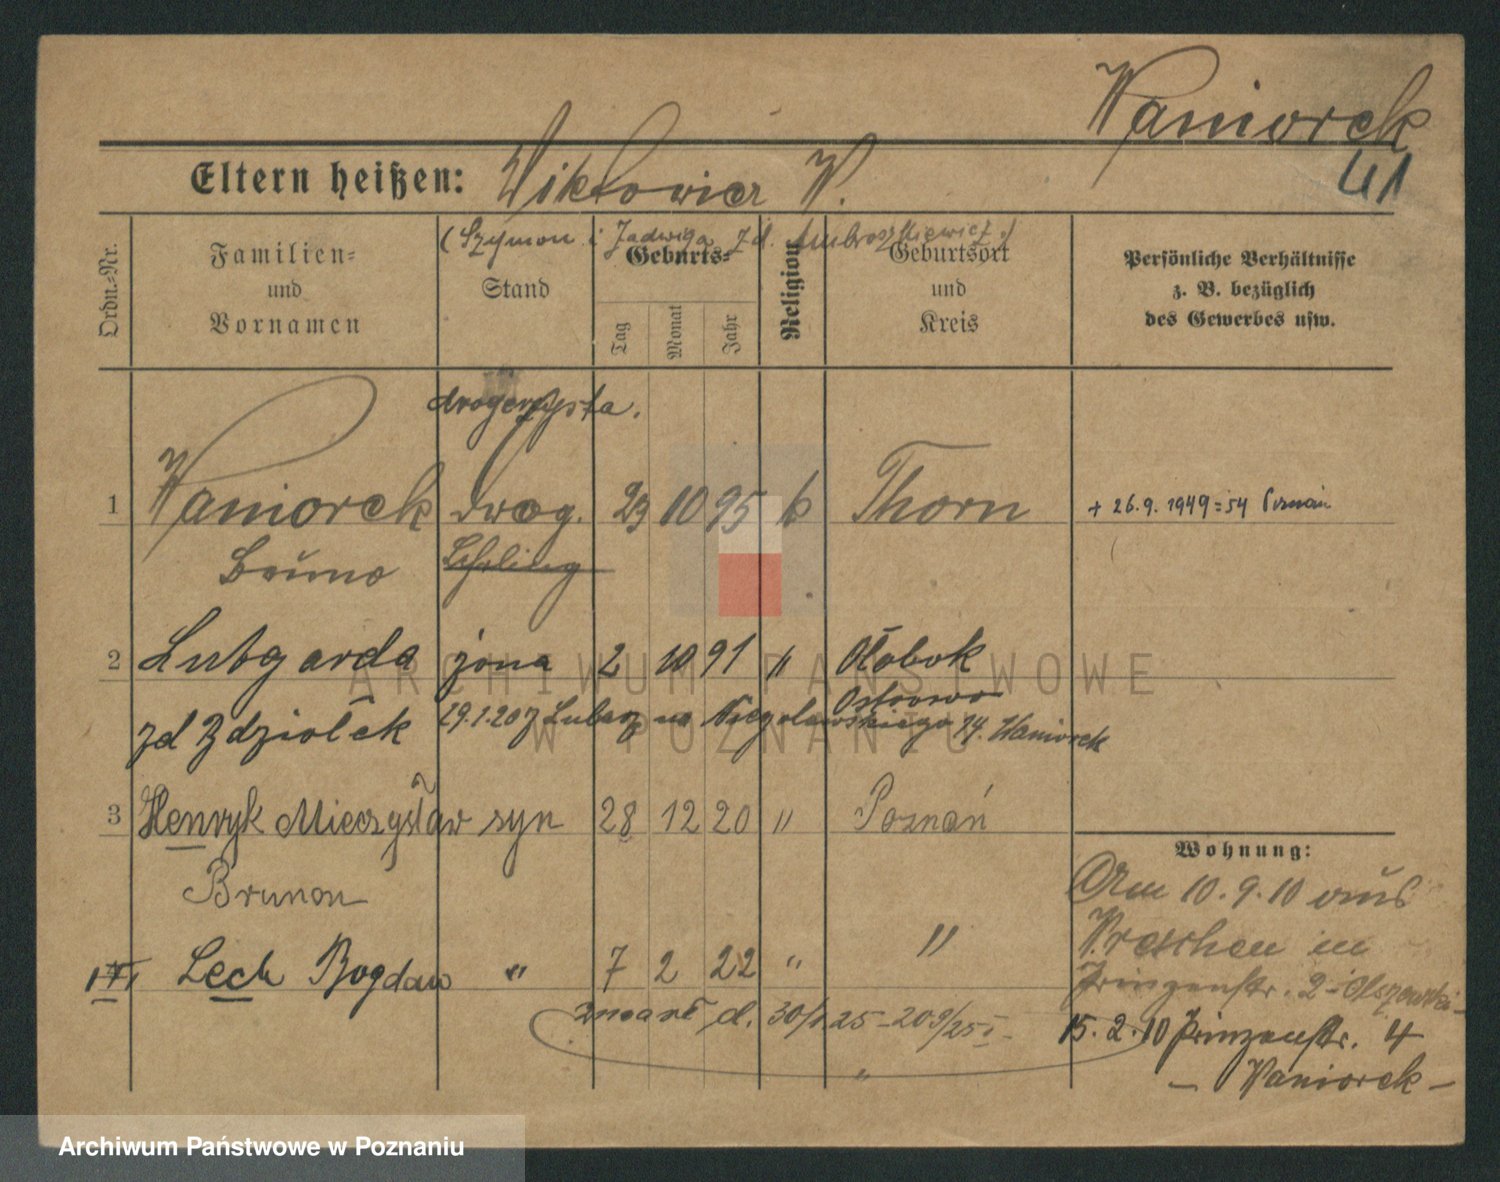 Waniorek
41
Eltern heißen: Wiktowicz W.
(Szymon i Jadwiga zd. Ambroszkiewicz.)
Ordn.-Nr.
Familien-
und
Vornamen
Stand
Geburts-
Tag
Monat
Jahr
Religion
Geburtsort
und
Kreis
Persönliche Verhältnisse
z. B. bezüglich
des Gewerbes usw.
drogerzysta.
1 Waniorek drog. 23 10 95 k Thorn + 26.9.1949 = 54 Poznań
Bruno Lehrling
2 Lutgarda żona 2 10 91 " Ołobok
Ostrowo
zd Zdziołek 29.1.20 z na 14. Waniorek
3 Henryk Mieczysław syn 28 12 20 " Poznań
Brunon
Lech Bogdan " 7 2 22 " "
zmarł d. 30/1 25 - 209/25 I -
Wohnung:
Am 10.9.10 aus
Wreschen in
Prinzenstr. 2 - Olszewski -
15.2.10 Prinzenstr. 4
- Waniorek -
ARCHIWUM PAŃSTWOWE
W POZNANIU
Archiwum Państwowe w Poznaniu